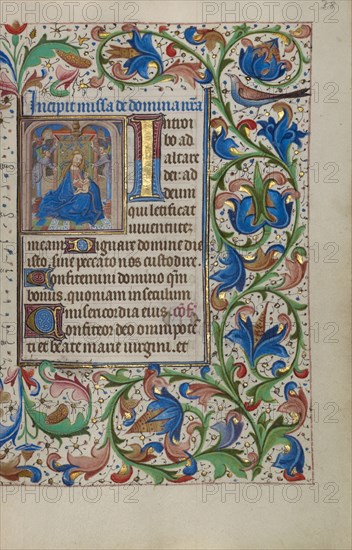 Incipit missa de domina nr̄a
Introi
bo ad
altare
dei ad
deum
qui letificat
iuventutē
meam Dignare domine die
isto, sine peccato nos custodire.
Confitemini domino qm̄
bonus. quoniam in seculum
misericordia eius.
Confiteor deo omnipotē
ti et beate marie virgini. et